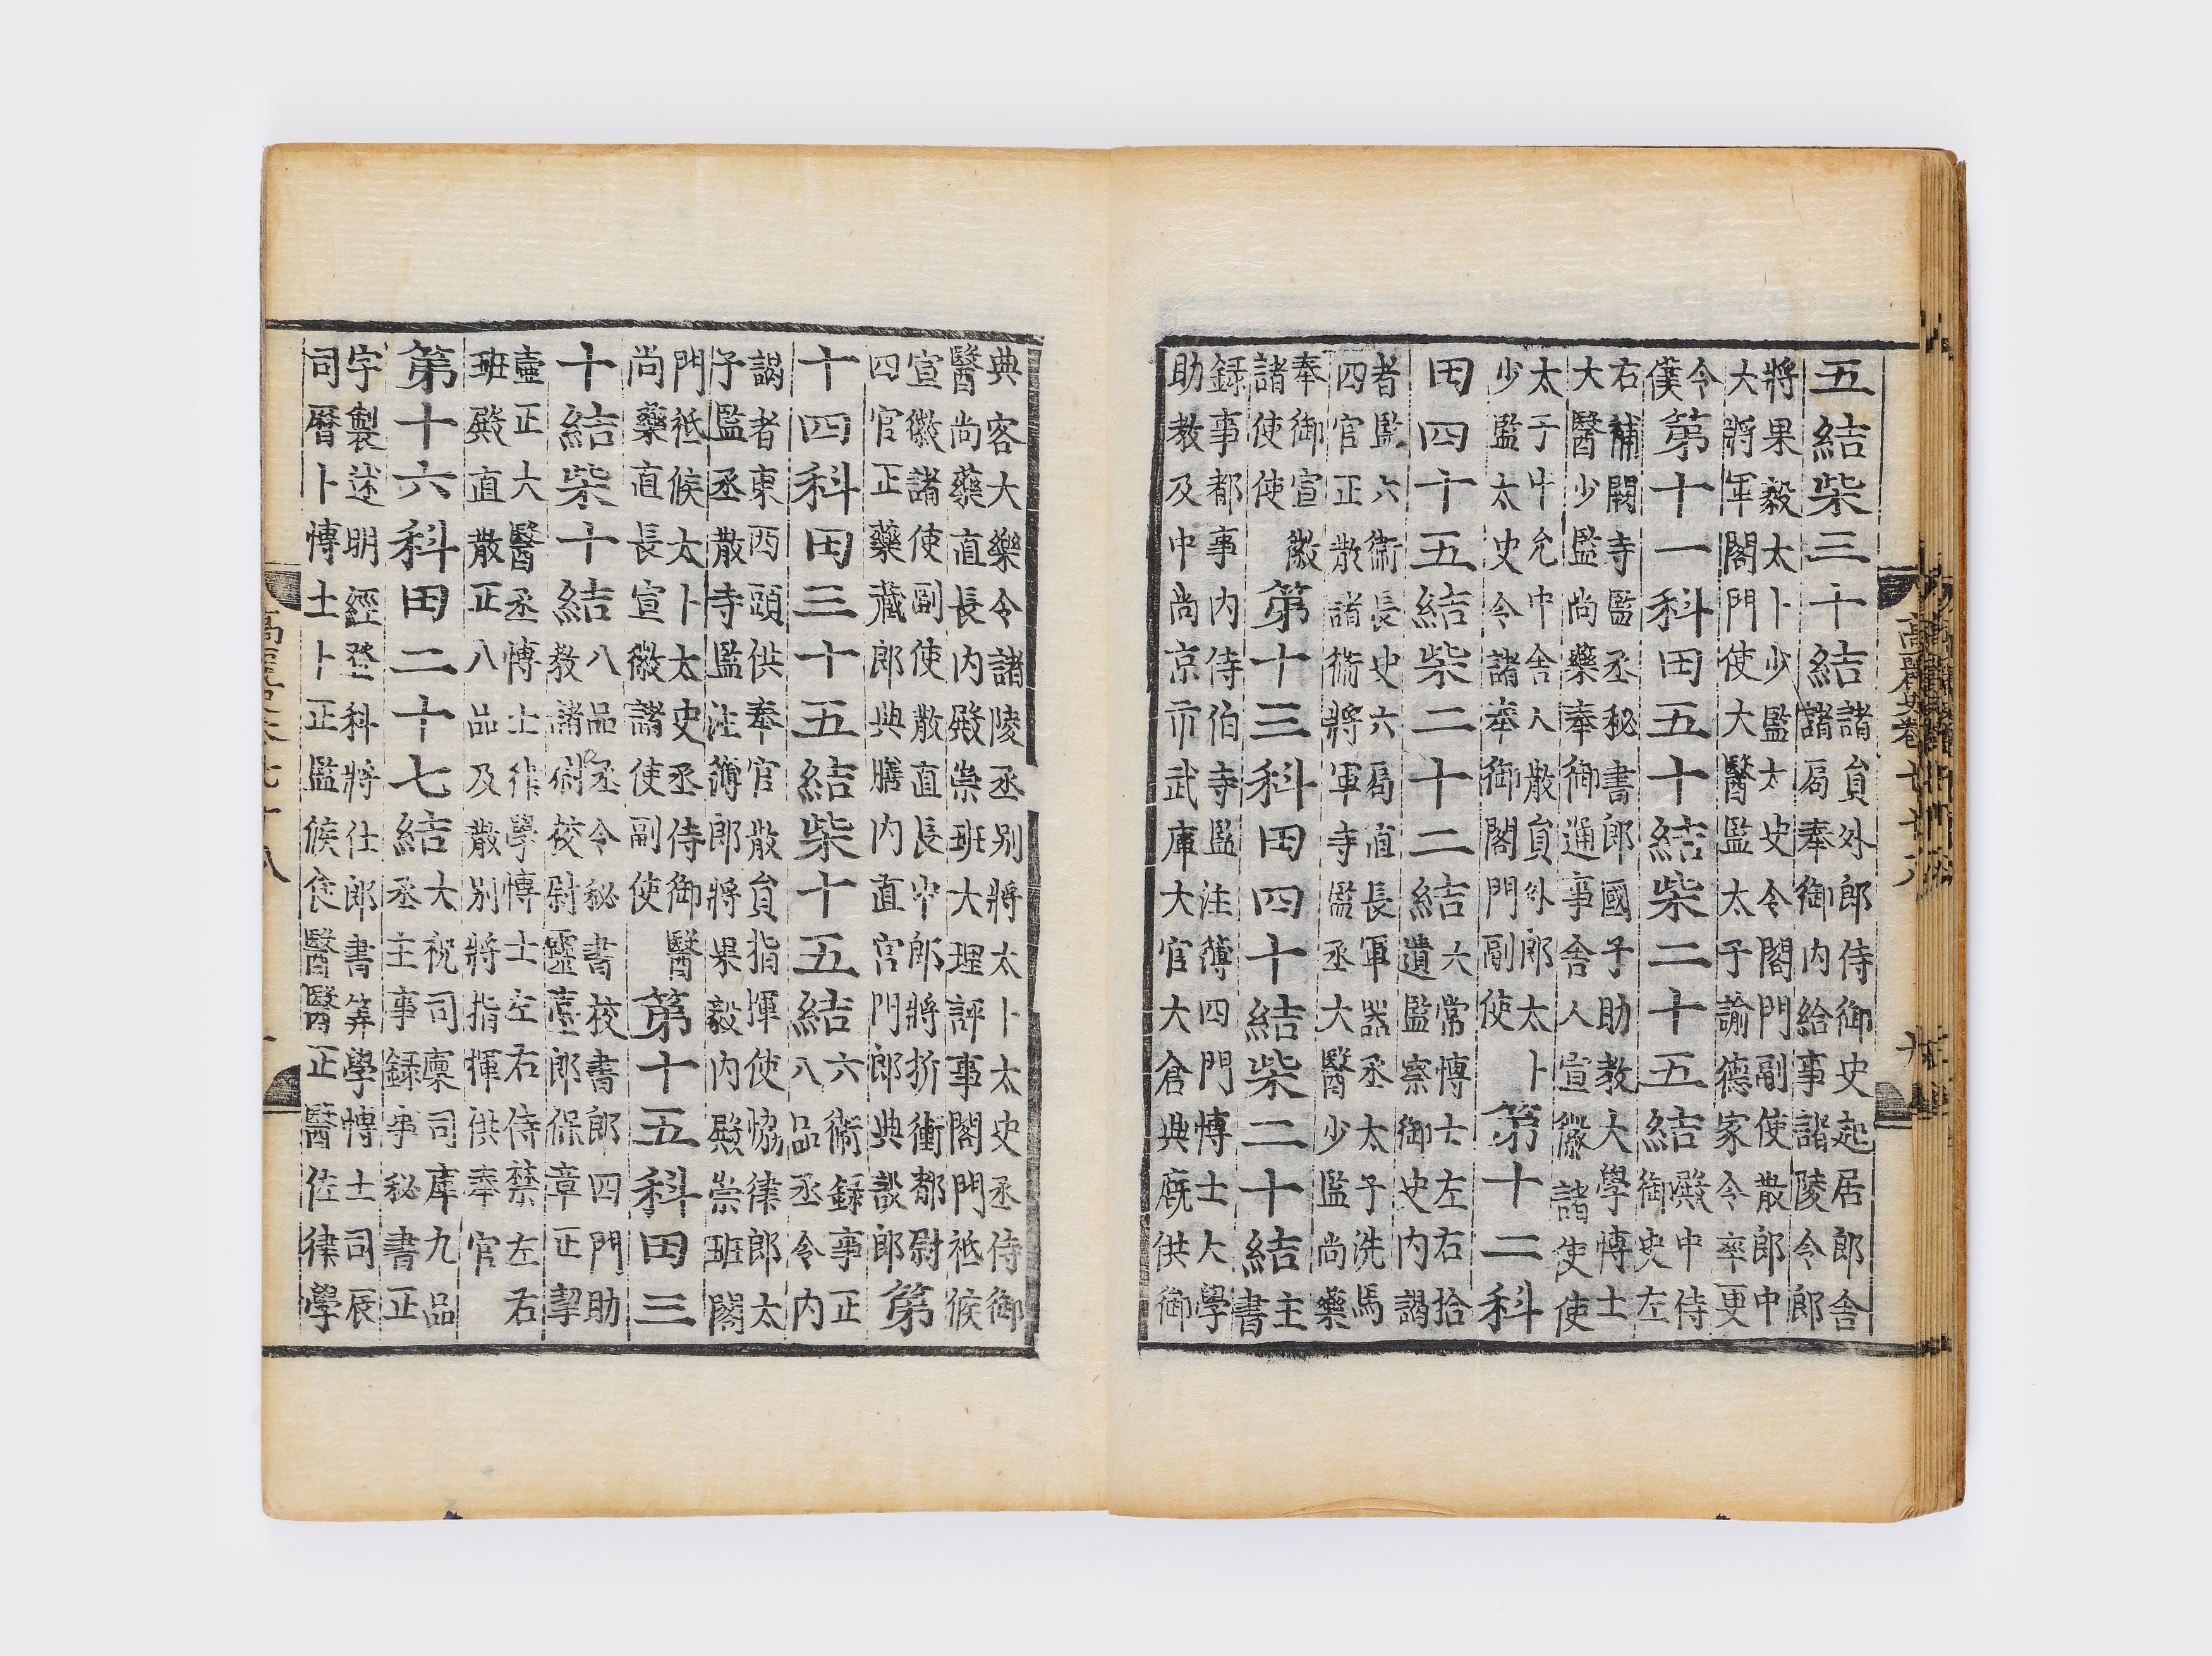 五結柴三十結諸貟外郎侍御史起居郎舍
諸局奉御內給事諸陵令郎
將果毅太卜少監太史令閣門副使散郎中
大將軍閣門使大醫監太子諭德家令率更
令僕第十一科田五十結柴二十五結殿中侍
御史左
右補闕寺監丞秘書郎國子助敎大學博士
大醫少監尚藥奉御通事舍人宣徽諸使使
太子中允中舍人散貟外郎太卜
少監太史令諸奉御閣門副使第十二科
田四十五結柴二十二結六常博士左右拾
遺監察御史內謁
者監六衛長史六局直長軍器丞太子洗馬
四官正散諸衛將軍寺監丞大醫少監尚藥
奉御宣徽
諸使使第十三科田四十結柴二十結主
書
録事都事內侍伯寺監注簿四門博士大學
助敎及中尚京市武庫大官大倉典廐供御
典客大樂令諸陵丞別將太卜太史丞侍御
醫尚藥直長內殿崇班大理評事閣門祗候
宣徽諸使副使散直長中郎將折衝都尉
四官正藥藏郎典膳內直宮門郎典設郎第
十四科田三十五結柴十五結六衛録事正
八品丞令內
謁者東西頭供奉官散貟指揮使協律郎太
子監丞散寺監注簿郎將果毅內殿崇班閣
門祗候太卜太史丞侍御醫
尚藥直長宣徽諸使副使第十五科田三
十結柴十結八品丞令秘書校書郎四門助
教諸衛校尉靈臺郎保章正挈
壷正大醫丞博士律學博士左右侍禁左右
班殿直散正八品及散別將指揮供奉官
第十六科田二十七結大祝司廩司庫九品
丞主事録事秘書正
字製述明經登科將仕郎書筭學博士司辰
司曆卜博士卜正監候食醫醫正醫佐律學
高麗史卷七十八